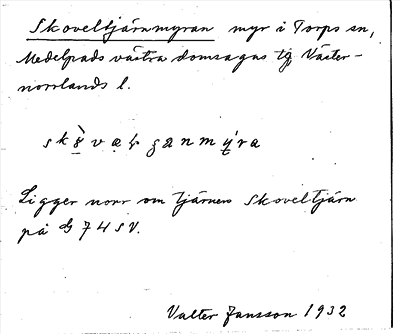 Skoveltjärnmyran myr i Torps sn,
Medelpads västra domsagas tg Väster-
norrlands l.
Ligger norr om tjärnen Skoveltjärn
på G 74 SV.
Valter Jansson 1932